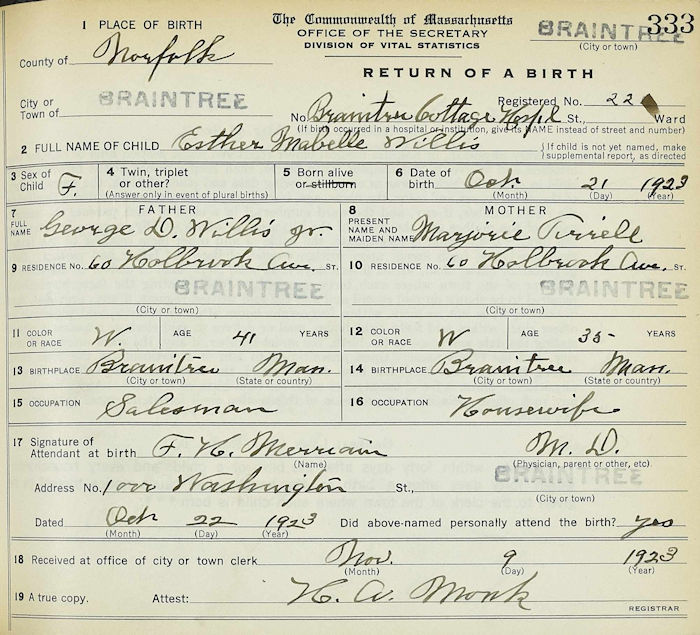 333
1 PLACE OF BIRTH
The Commonwealth of Massachusetts
OFFICE OF THE SECRETARY
DIVISION OF VITAL STATISTICS
BRAINTREE
(City or town)
County of Norfolk
RETURN OF A BIRTH
City or Town of BRAINTREE
Registered No. 22
No. Braintree Cottage Hospl St., Ward
(If birth occurred in a hospital or institution, give its NAME instead of street and number)
2 FULL NAME OF CHILD Esther Mabelle Willis
If child is not yet named, make supplemental report, as directed
3 Sex of Child F. 4 Twin, triplet or other? 5 Born alive or stillborn 6 Date of birth Oct. 21 1923
(Answer only in event of plural births) (Month) (Day) (Year)
7 FATHER 8 MOTHER
FULL NAME George D. Willis Jr. PRESENT NAME AND MAIDEN NAME Marjorie Tirrell
9 RESIDENCE No. 60 Holbrook Ave. ST. 10 RESIDENCE No. 60 Holbrook Ave. ST.
BRAINTREE BRAINTREE
(City or town) (City or town)
11 COLOR OR RACE W. AGE 41 YEARS 12 COLOR OR RACE W AGE 35 YEARS
13 BIRTHPLACE Braintree Mass. 14 BIRTHPLACE Braintree Mass.
(City or town) (State or country) (City or town) (State or country)
15 OCCUPATION Salesman 16 OCCUPATION Housewife
17 Signature of Attendant at birth F. H. Merriam M. D.
(Name) (Physician, parent or other, etc)
Address No. 1000 Washington St., BRAINTREE
(City or town)
Dated Oct 22 1923 Did above-named personally attend the birth? yes
(Month) (Day) (Year)
18 Received at office of city or town clerk Nov. 9 1923
(Month) (Day) (Year)
19 A true copy. Attest: H. A. Monk
REGISTRAR